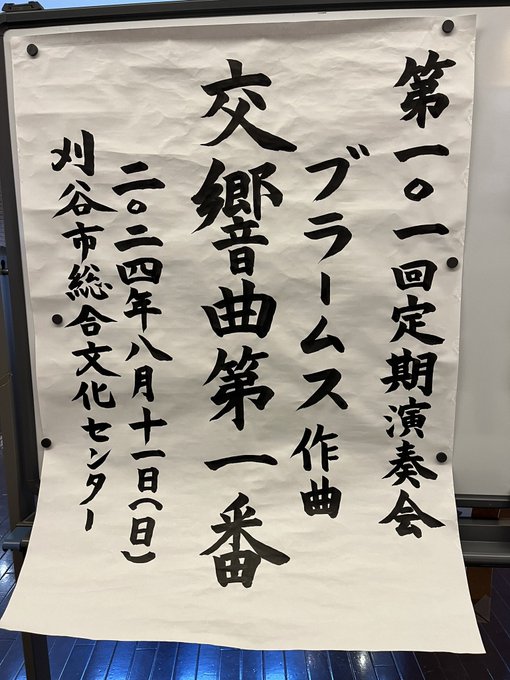 第一〇一回定期演奏会
ブラームス作曲
交響曲第一番
二〇二四年八月十一日(日)
刈谷市総合文化センター